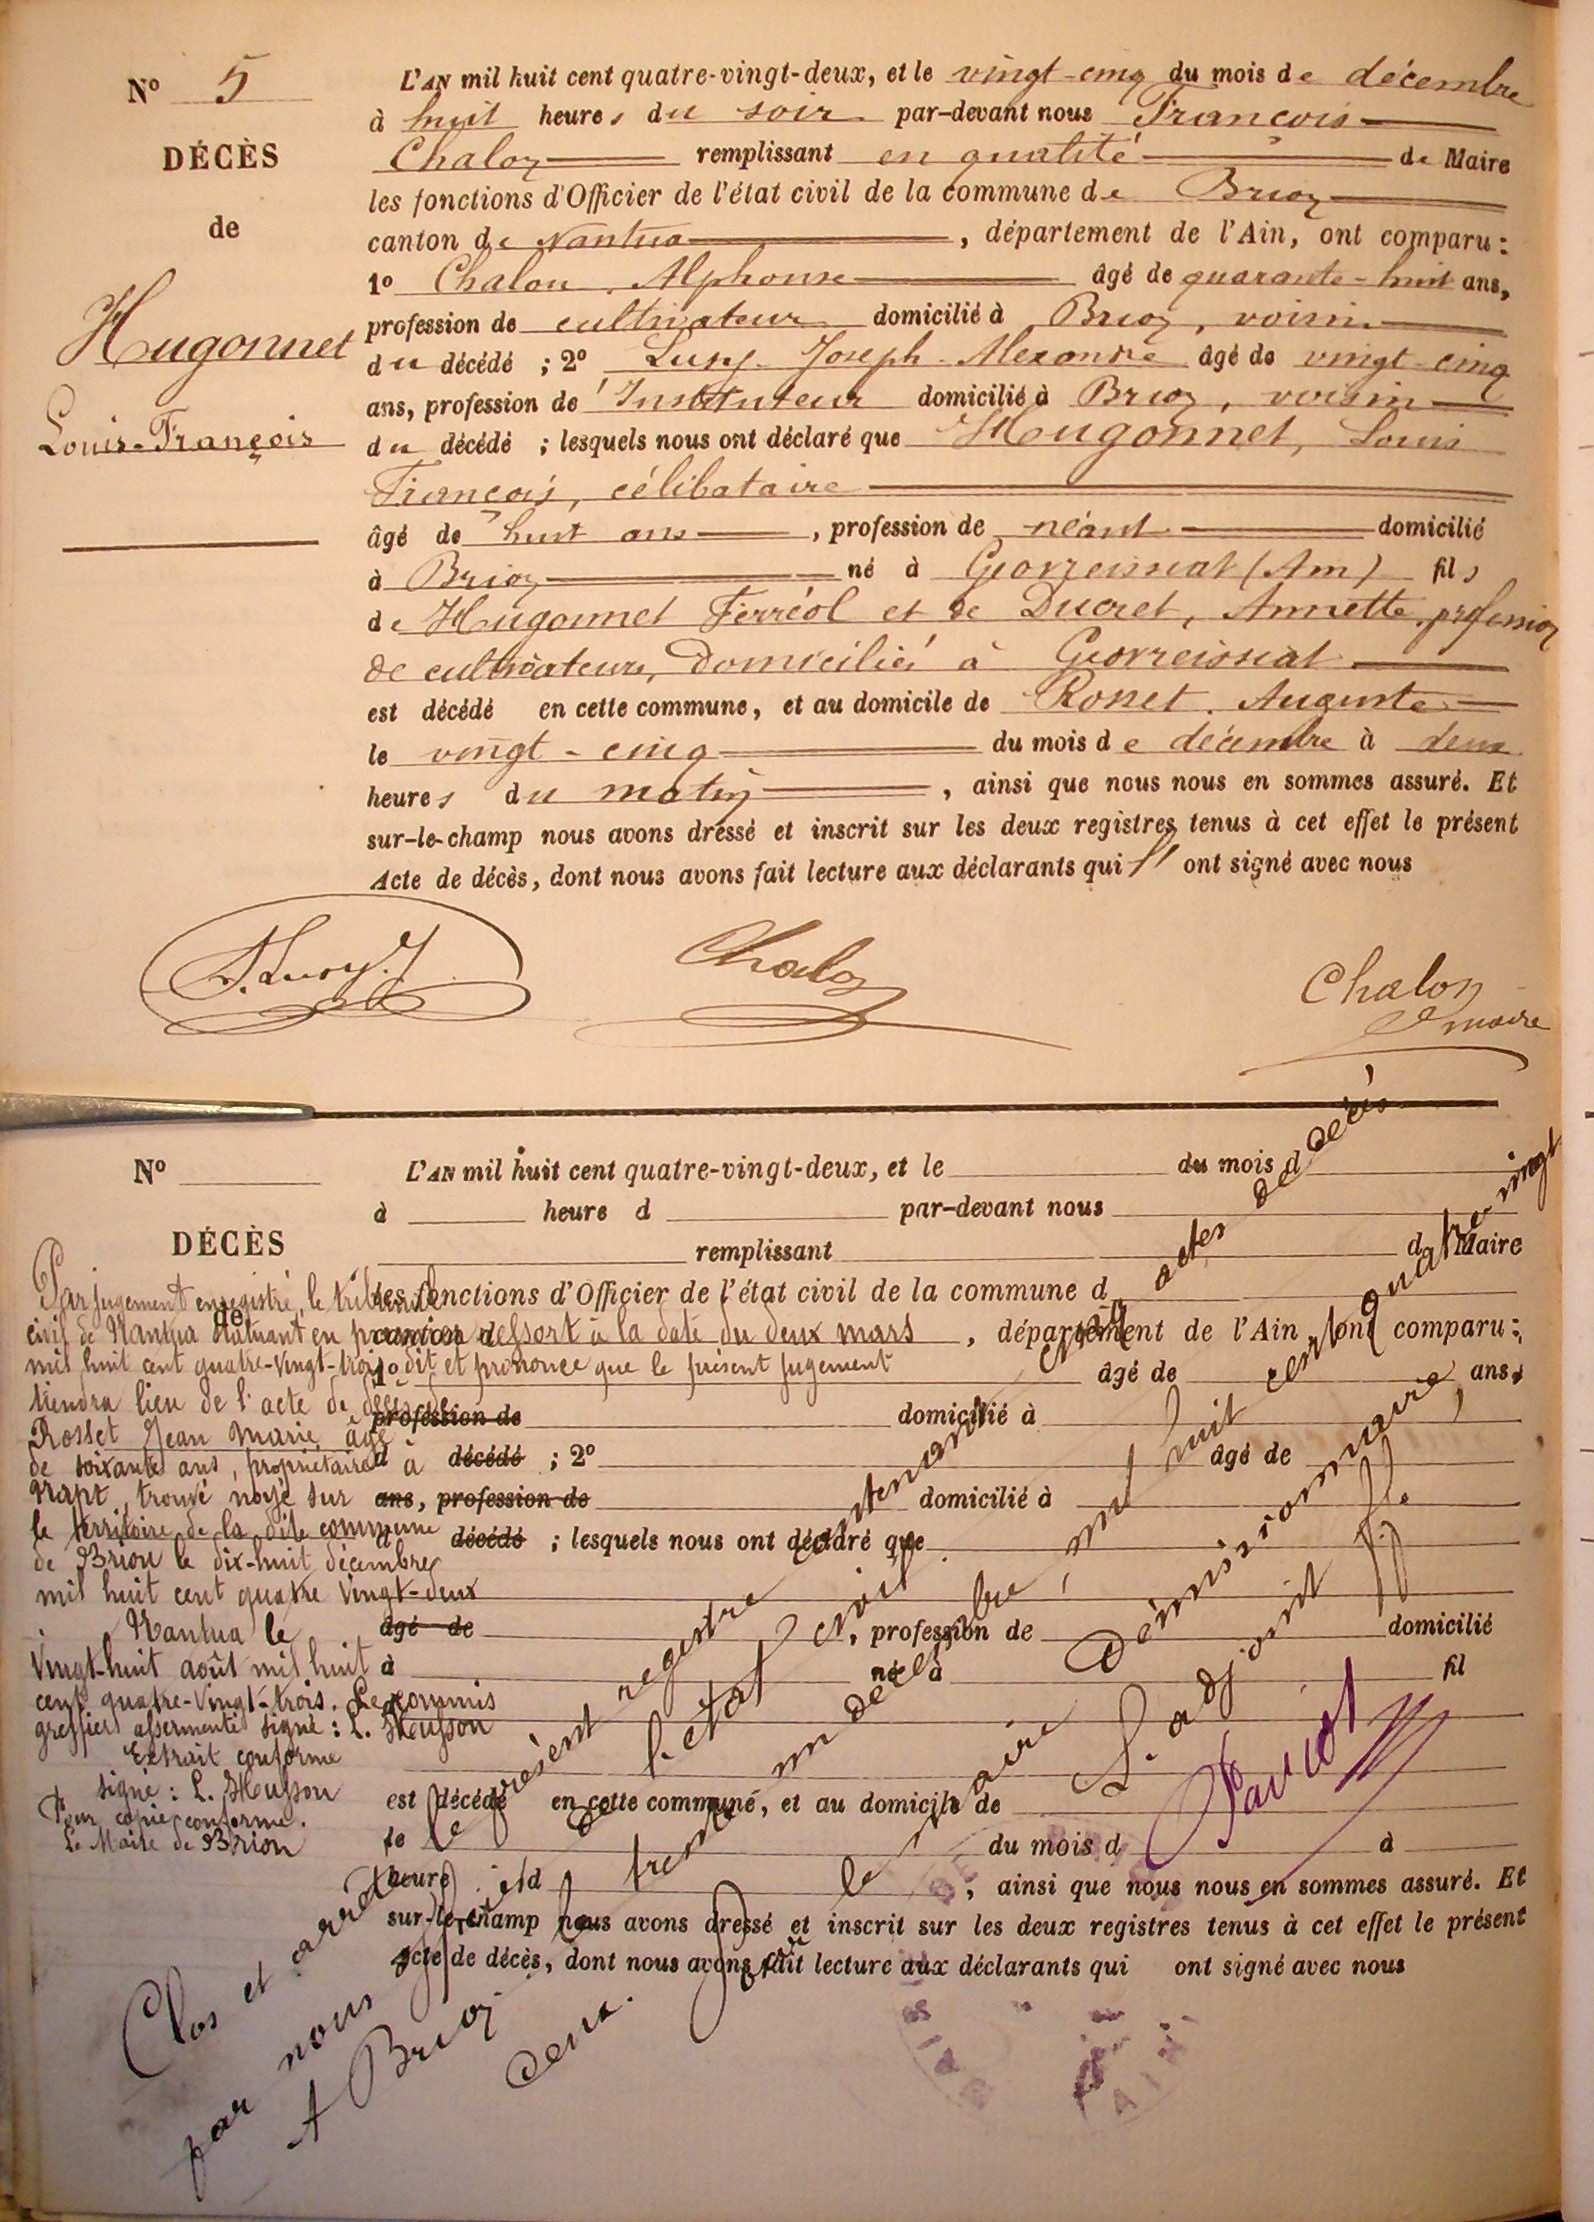 N° 5
DÉCÈS
de
Hugonnet
Louis-François
L'AN mil huit cent quatre-vingt-deux, et le vingt-cinq du mois de décembre
à huit heures du soir par-devant nous François
Chalon remplissant en qualité de Maire
les fonctions d'Officier de l'état civil de la commune de Brion
canton de Nantua, département de l'Ain, ont comparu :
1° Chalon Alphonse âgé de quarante-huit ans,
profession de cultivateur domicilié à Brion, voisin
du décédé ; 2° Lusy Joseph Alexandre âgé de vingt-cinq
ans, profession de Instituteur domicilié à Brion, voisin
du décédé ; lesquels nous ont déclaré que Hugonnet, Louis
François, célibataire
âgé de huit ans, profession de néant domicilié
à Brion né à Géovreissiat (Ain) fils
de Hugonnet Ferréol et de Ducret, Annette, profession
de cultivateurs, domiciliés à Géovreissiat
est décédé en cette commune, et au domicile de Ronet Auguste
le vingt-cinq du mois de décembre à deux
heures du matin, ainsi que nous nous en sommes assuré. Et
sur-le-champ nous avons dressé et inscrit sur les deux registres tenus à cet effet le présent
Acte de décès, dont nous avons fait lecture aux déclarants qui l' ont signé avec nous
Chalon
Chalon
maire
N°
DÉCÈS
de
L'AN mil huit cent quatre-vingt-deux, et le du mois d
à heure d par-devant nous
remplissant d Maire
les fonctions d'Officier de l'état civil de la commune d
canton d , département de l'Ain, ont comparu :
1° âgé de ans,
profession de domicilié à
d décédé ; 2° âgé de
ans, profession de domicilié à
d décédé ; lesquels nous ont déclaré que
âgé de , profession de domicilié
à né à fil
d
est décédé en cette commune, et au domicile de
le du mois d à
heure d , ainsi que nous nous en sommes assuré. Et
sur-le-champ nous avons dressé et inscrit sur les deux registres tenus à cet effet le présent
Acte de décès, dont nous avons fait lecture aux déclarants qui ont signé avec nous
Par jugement enregistré, le tribunal
civil de Nantua statuant en premier ressort à la date du deux mars
mil huit cent quatre-vingt-trois dit et prononce que le présent jugement
tiendra lieu de l'acte de décès de
Rosset Jean Marie, âgé
de soixante ans, propriétaire à
trouvé noyé sur
le territoire de la dite commune
de Brion le dix-huit décembre
mil huit cent quatre vingt-deux
Nantua le
Vingt-huit août mil huit
cent quatre-vingt-trois. Le commis
greffier assermenté signé : L. Husson
Extrait conforme
signé : L. Husson
Pour copie conforme.
Le Maire de Brion
Clos et arrêté le présent registre contenant cinq actes de décès
par nous officier de l'état civil
A Brion le trente un décembre, mil huit cent quatre-vingt
deux.
le maire démissionnaire,
L'adjoint
AIN